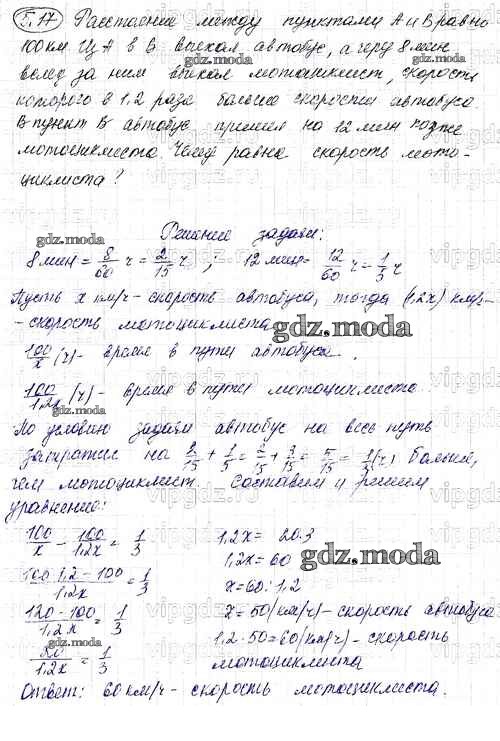 5.17 Расстояние между пунктами А и В равно
100 км. Из А в В выехал автобус, а через 8 мин
вслед за ним выехал мотоциклист, скорость
которого в 1,2 раза больше скорости автобуса.
В пункт В автобус пришел на 12 мин позже
мотоциклиста. Чему равна скорость мото-
циклиста?
Решение задачи:
gdz.moda
8 мин = 8/60 ч = 2/15 ч ; 12 мин = 12/60 ч = 1/3 ч
Пусть х км/ч - скорость автобуса, тогда (1,2х) км/ч -
- скорость мотоциклиста
gdz.moda
100/х (ч) - время в пути автобуса.
100/1,2х (ч) - время в пути мотоциклиста.
По условию задачи автобус на весь путь
затратил на 2/15 + 1/5 = 2/15 + 3/15 = 5/15 = 1/3 (ч) больше,
чем мотоциклист. Составим и решим
уравнение:
100/х - 100/1,2х = 1/3
100·1,2 - 100/1,2х = 1/3
120 - 100/1,2х = 1/3
20/1,2х = 1/3
1,2х = 20·3
gdz.moda
1,2х = 60
х = 60 : 1,2
х = 50 (км/ч) - скорость автобуса
1,2·50 = 60 (км/ч) - скорость
мотоциклиста
Ответ: 60 км/ч - скорость мотоциклиста.